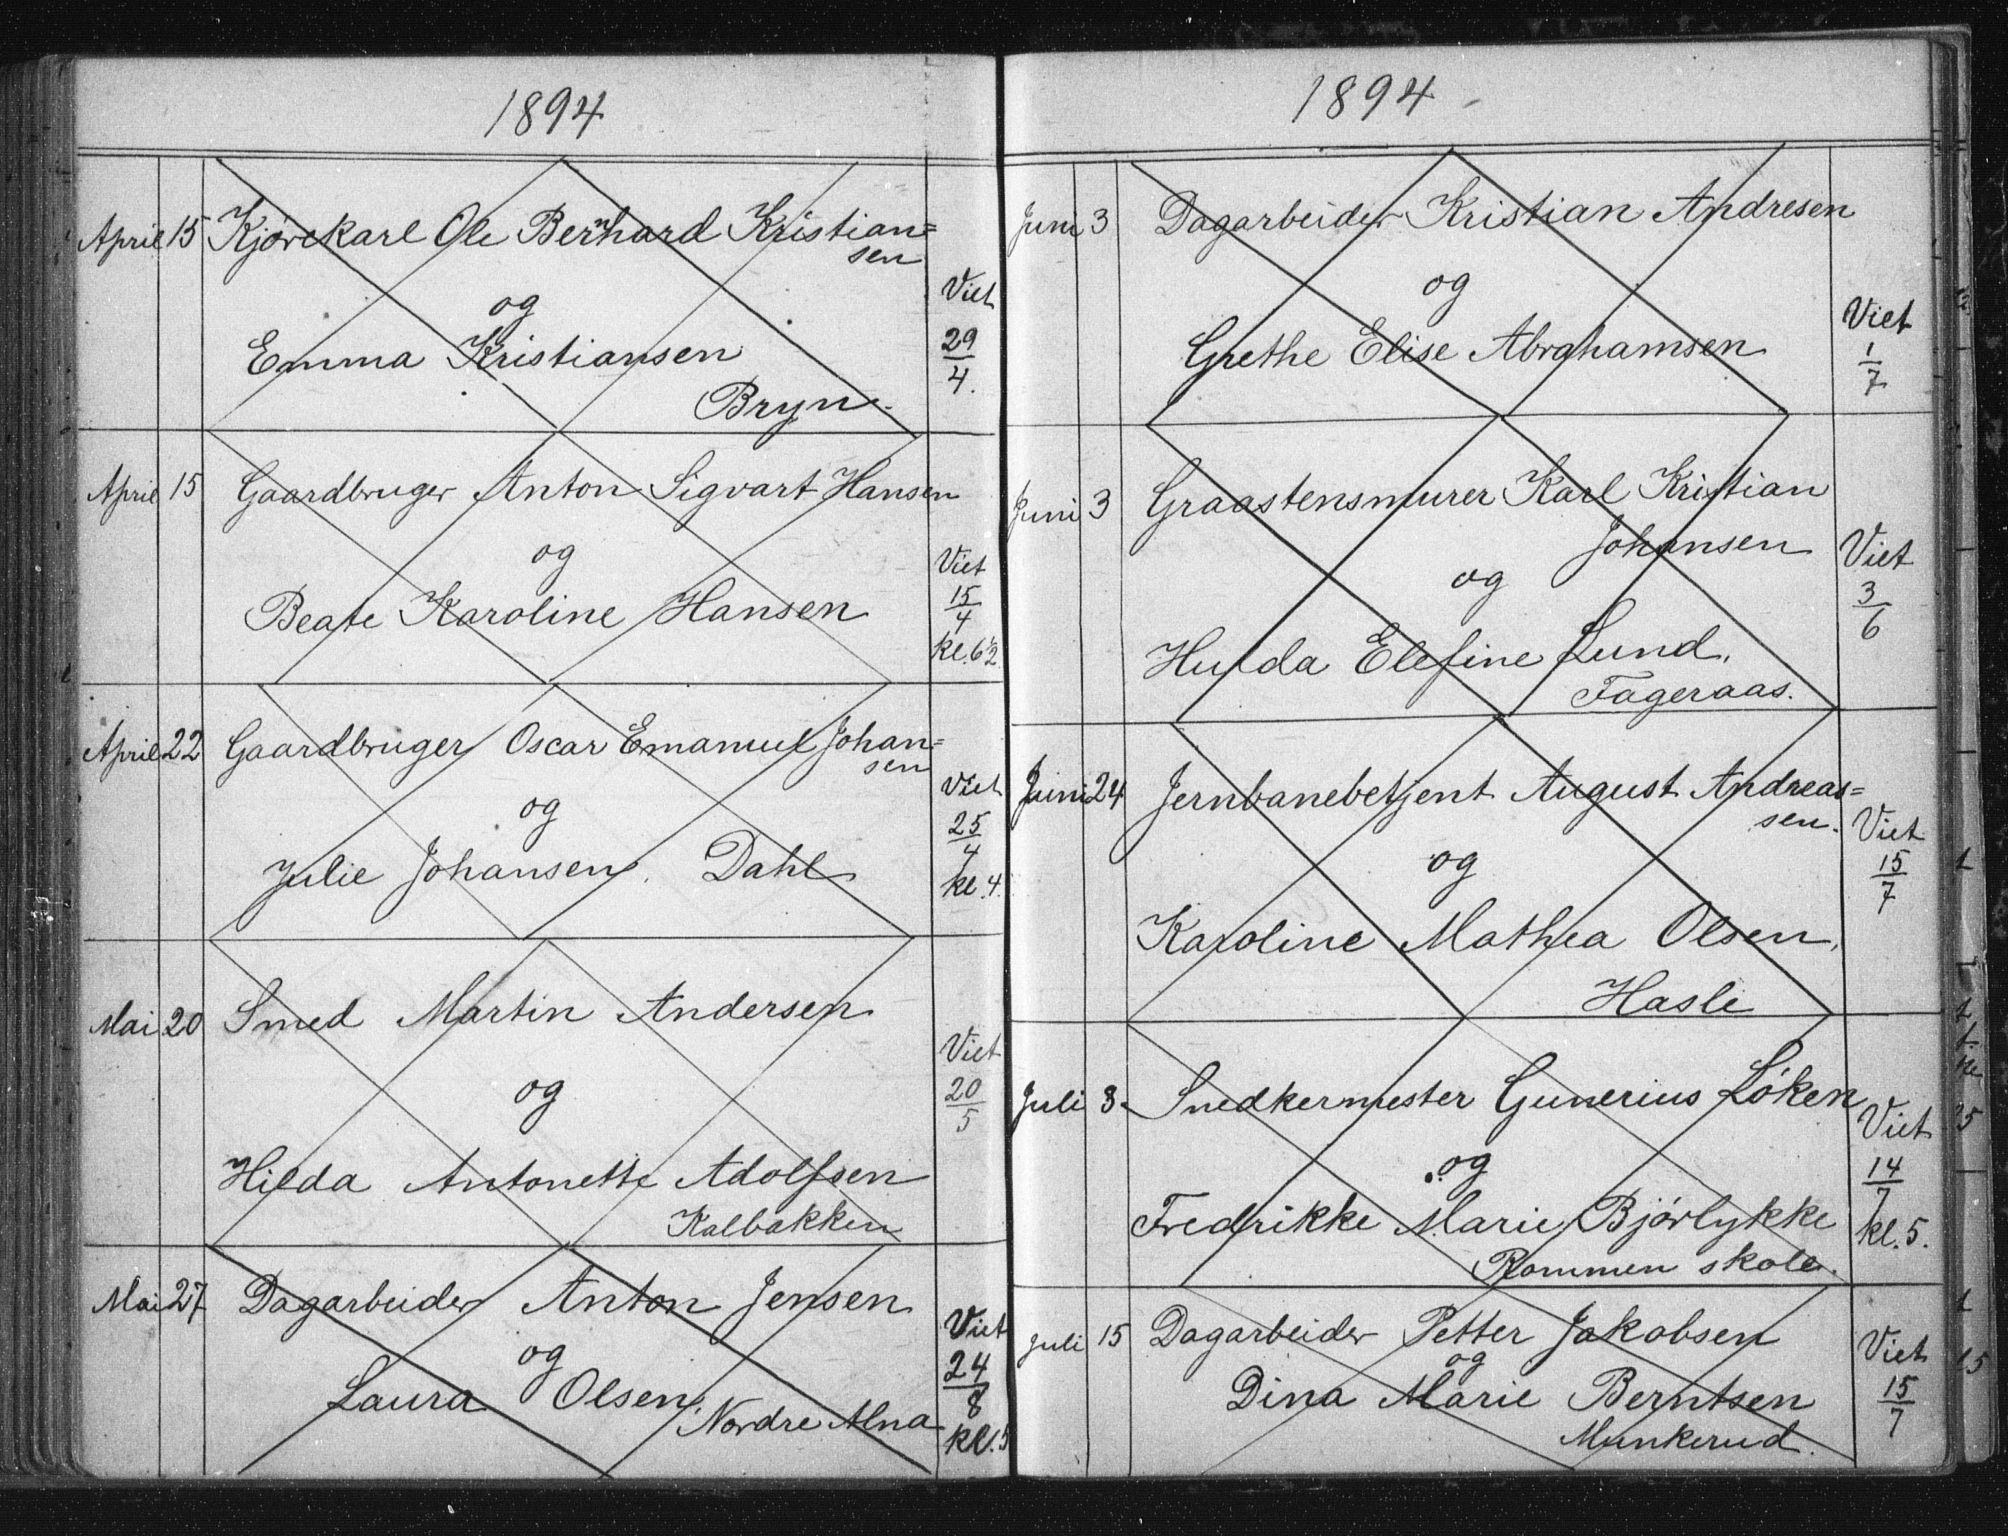 1894
April 15 Kjørekarl Ole Bernhard Kristian=
sen
og
Viet
Emma Kristiansen
29/4.
Bryn.
April 15 Gaardbruger Anton Sigvart Hansen
og
Viet
Beate Karoline Hansen
15/4
kl. 6 1/2
April 22 Gaardbruger Oscar Emanuel Johan=
sen
og
Viet
25/4
Julie Johansen. Dahl
kl. 4.
Mai 20 Smed Martin Andersen
Viet
og
20/5
Hilda Antonette Adolfsen
Kalbakken
Mai 27 Dagarbeider Anton Jensen
Viet
og
24/8
Laura Olsen, Nordre Alna
kl. 5
1894
Juni 3 Dagarbeider Kristian Andresen
og
Viet
Grethe Elise Abrahamsen
1/7
Juni 3 Graastensmurer Karl Kristian
Johansen
Viet
og
3/6
Hulda Elefine Lund.
Fageraas.
Juni 24 Jernbanebetjent August Andreas=
sen.
Viet
og
15/7
Karoline Mathea Olsen,
Hasle
Juli 8. Snedkermester Gunerius Løken
Viet
og
14/7
Fredrikke Marie Bjørlykke
kl. 5.
Rommen skole.
Juli 15 Dagarbeider Petter Jakobsen
Viet
og
Dina Marie Berntsen
15/7
Munkerud.